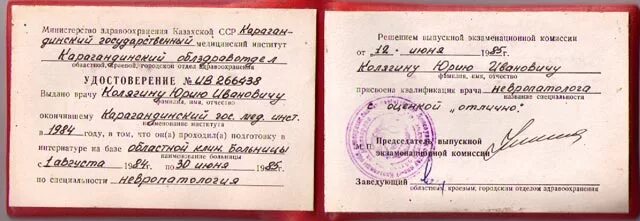 Министерство здравоохранения Казахской ССР Караган-
динский государственный медицинский институт
Карагандинский облздравотдел
областной, краевой, городской отдел здравоохранения
УДОСТОВЕРЕНИЕ № ИВ 266438
Выдано врачу Колягину Юрию Ивановичу
фамилия, имя, отчество
окончившему Карагандинский гос. мед. инст.
наименование института
в 1984 году, в том, что он(а) проходил(а) подготовку в
интернатуре на базе областной клин. Больницы
наименование больницы
с 1 августа 1984г. по 30 июня 1985г.
по специальности невропатология
Решением выпускной экзаменационной комиссии
от „12“ июня 1985г.
Колягину Юрию Ивановичу
фамилия, имя, отчество
присвоена квалификация врача невропатолога
название специальности
с оценкой „отлично“.
Председатель выпускной
М.П.
экзаменационной комиссии
Заведующий
областным, краевым, городским отделом здравоохранения